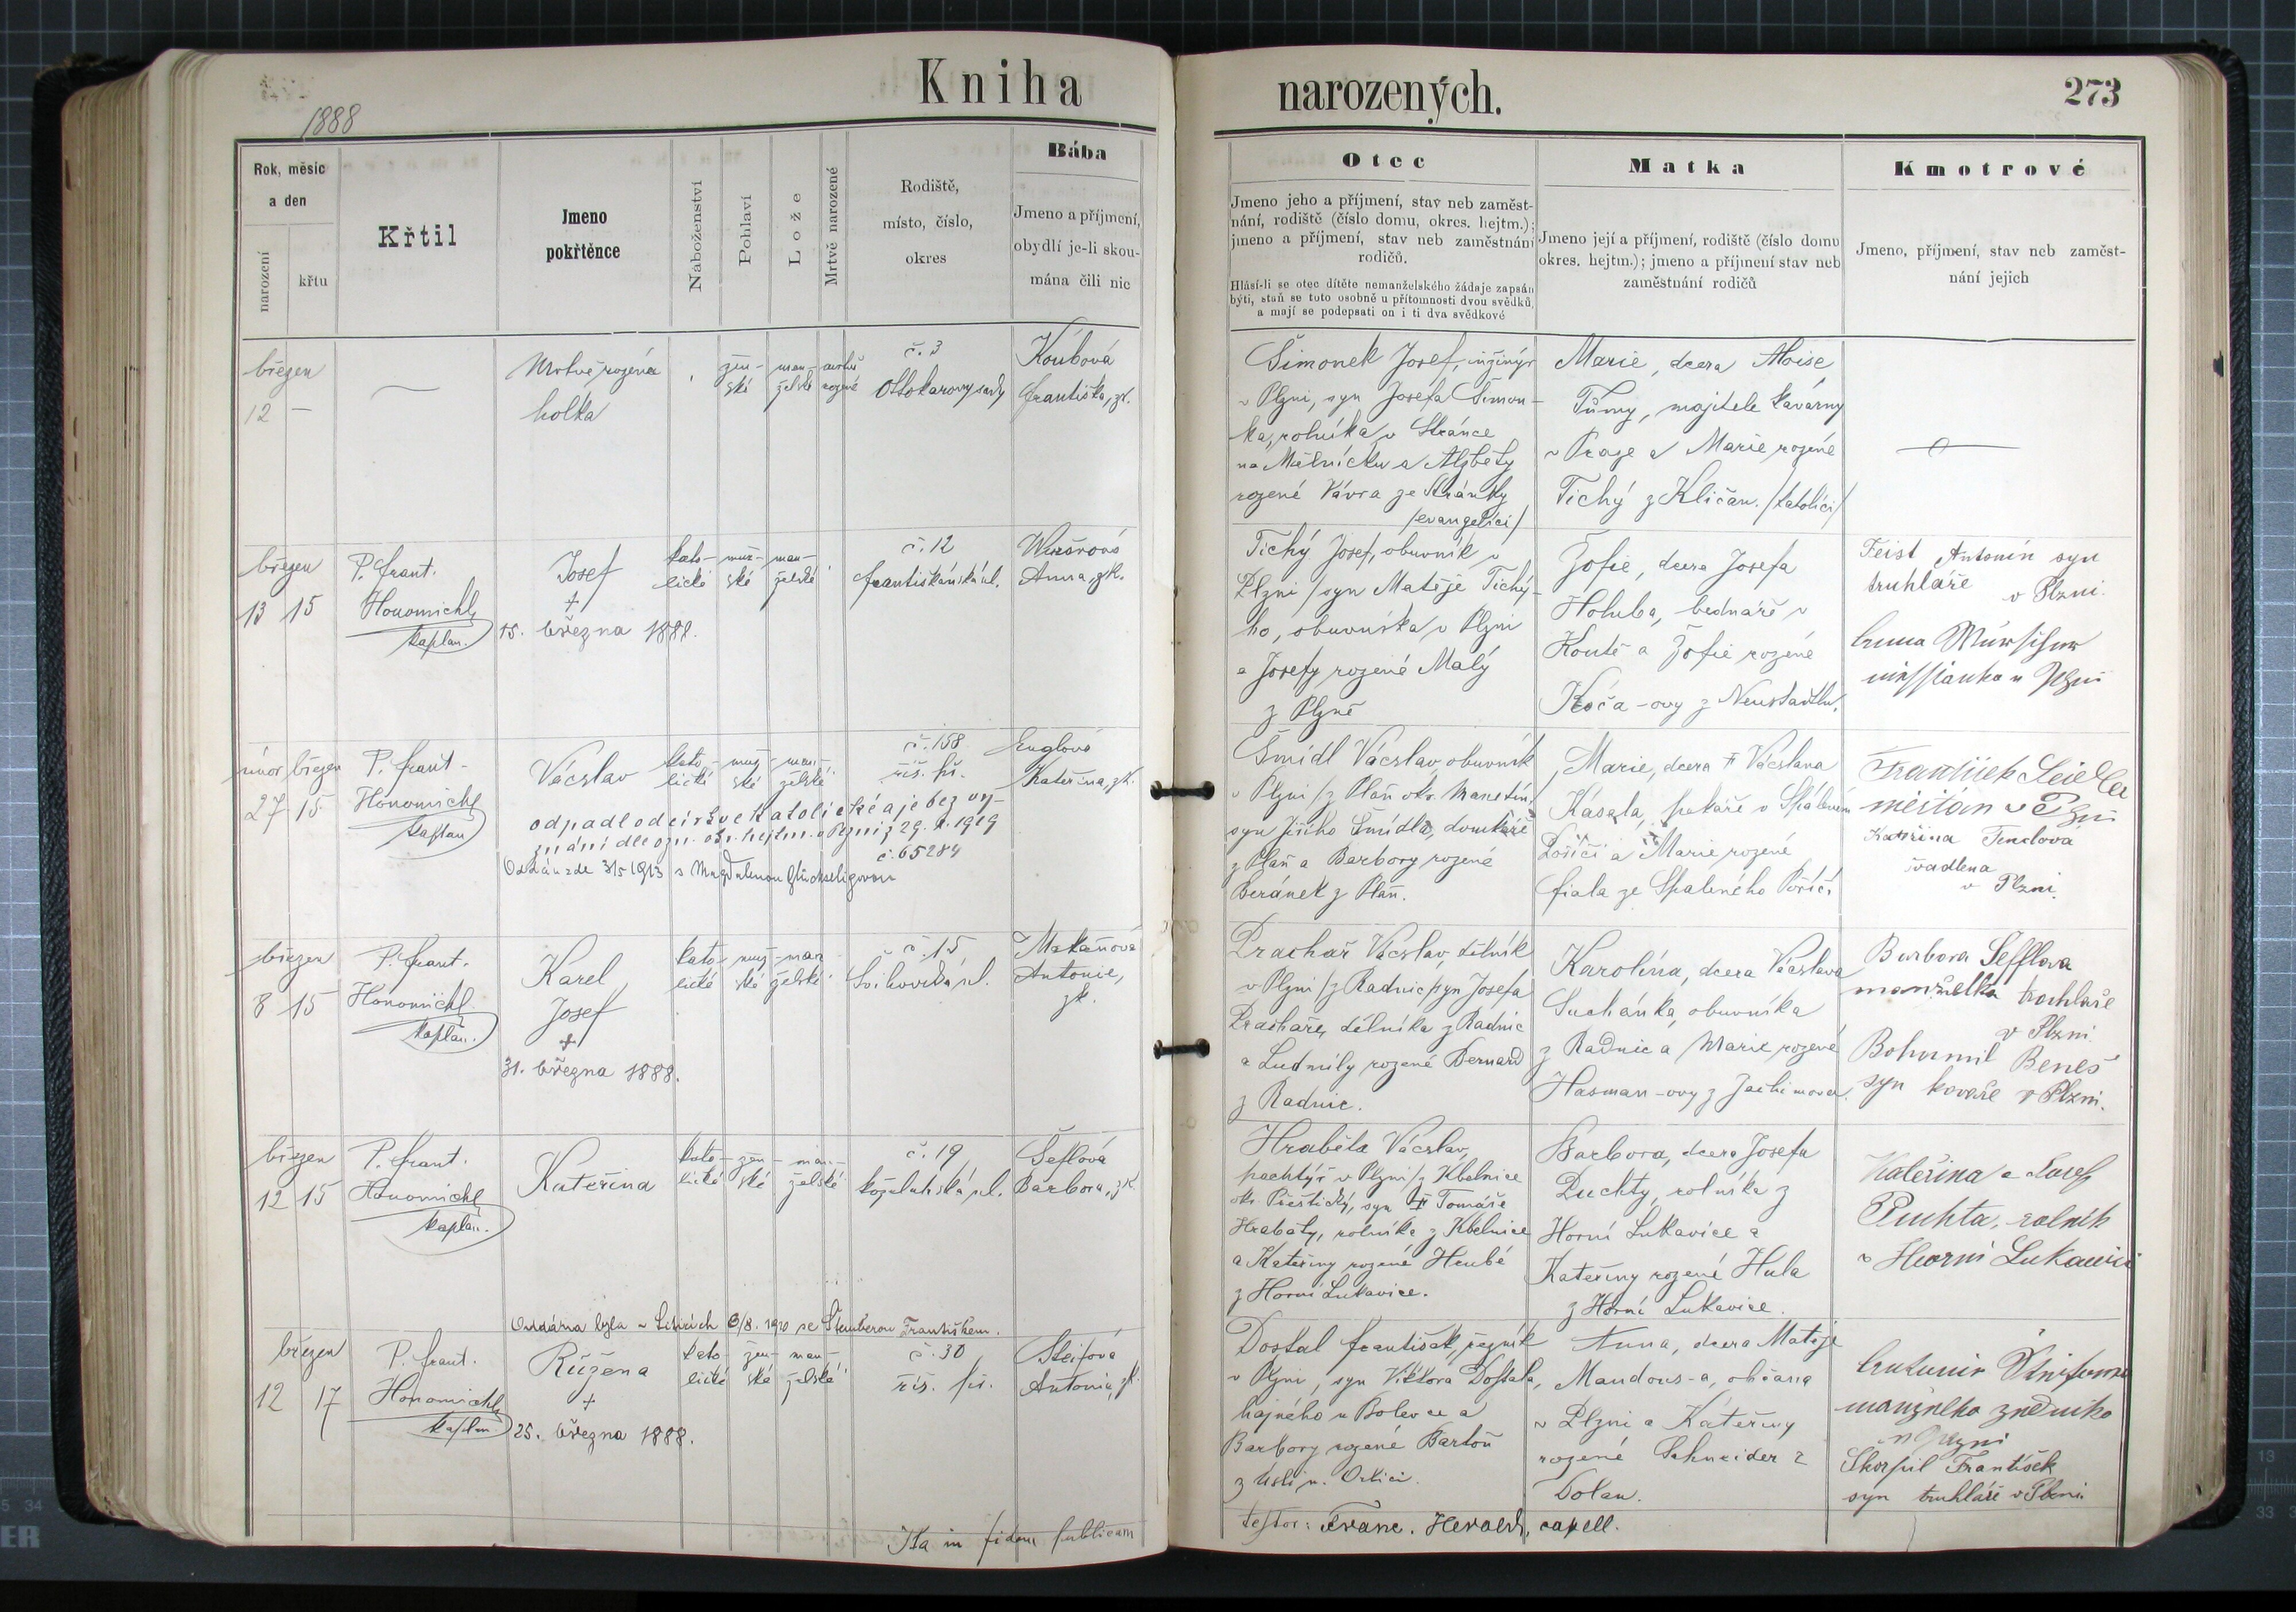 Kniha
narozených.
273
1888
Rok, měsíc
a den
narození
křtu
Křtil
Jmeno
pokřtěnce
Náboženství
Pohlaví
Lože
Mrtvě narozené
Rodiště,
místo, číslo,
okres
Bába
Jmeno a příjmení,
obydlí je-li skou-
mána čili nic
Otec
Jmeno jeho a příjmení, stav neb zaměst-
nání, rodiště (číslo domu, okres. hejtm.);
jmeno a příjmení, stav neb zaměstnání
rodičů.
Hlásí-li se otec dítěte nemanželského žádaje zapsán
býti, staň se toto osobně u přítomnosti dvou svědků,
a mají se podepsati on i ti dva svědkové
Matka
Jmeno její a příjmení, rodiště (číslo domu
okres. hejtm.); jmeno a příjmení stav neb
zaměstnání rodičů
Kmotrové
Jmeno, příjmení, stav neb zaměst-
nání jejich
březen
12 —
Mrtvě rozená
holka
žen-
ské
man-
želské
mrtvě
rozené
č. 3
Ottokarovy sady
Koubová
Františka, zk.
Šimonek Josef, inžinýr
v Plzni, syn Josefa Šimon-
ka, rolníka v Stránce
na Mělnicku a Alžběty
rozené Vávra ze Stránky
/evangelíci/
Marie, dcera Aloise
Tůmy, majitele kavárny
v Praze a Marie rozené
Tichý z Kličan. /katolíci/
březen
13 15
P. Frant.
Honomichl,
kaplan.
Josef
+
15. března 1888.
kato-
lické
muž-
ské
man-
želské
č. 12
Františkánská ul.
Anna, zk.
Tichý Josef, obuvník v
Plzni /syn Matěje Tichý-
ho, obuvníka v Plzni
a Josefy rozené Malý
z Plzně
Žofie, dcera Josefa
Holuba, bednáře v
Koutě a Žofie rozené
Koča-ovy z Neustadtlu.
Feist Antonín syn
truhláře v Plzni.
Anna
únor březen
27 15
P. Frant.
Honomichl
kaplan
Vácslav
kato-
lické
muž-
ské
man-
želské
č. 158
říš. př.
Englová
Kateřina, zk.
odpadl od církve katolické a je bez vy-
znání dle ozn. okr. hejtm. v Plzni z 29. X. 1919
č. 65284
Oddán zde 31/5 1913 s Magdalenou Glückseligovou
Šmídl Vácslav, obuvník
v Plzni /z Pláň okr. Manetín,
syn Jiřího Šmídla, domkáře
z Pláň a Barbory rozené
Beránek z Pláň.
Marie, dcera + Vácslava
Kásala, pekaře v Spáleném
Poříčí a Marie rozené
Fiala ze Spáleného Poříčí
František
měšťan v Plzni
Kateřina Tenclová
švadlena
v Plzni.
březen
8 15
P. Frant.
Honomichl
kaplan.
Karel
Josef
+
31. března 1888.
kato-
lické
muž-
ské
man
želské
č. 15
ul.
Makaňová
Antonie,
zk.
Prachař Vácslav, dělník
v Plzni /z Radnic/ syn Josefa
Prachaře, dělníka z Radnic
a Ludmily rozené Bernard
z Radnic.
Karolína, dcera Vácslava
Suchánka, obuvníka
z Radnic a Marie rozené
Hasman-ovy z Jachimova.
Barbora Sefflova
manželka truhláře
v Plzni
Bohumil Beneš
syn kováře v Plzni.
březen
12 15
P. Frant.
Honomichl
kaplan.
Kateřina
kato-
lické
žen-
ské
man-
želské
č. 19
koželužská ul.
Šeflová
Barbora, zk.
Hraběta Vácslav,
pachtýř v Plzni /z Kbelnice
okr. Přeštický, syn + Tomáše
Hraběty, rolníka z Kbelnice
a Kateřiny rozené Hrubé
z Horní Lukavice.
Barbora, dcera Josefa
Puchty, rolníka z
Horní Lukavice a
Kateřiny rozené Hula
z Horní Lukavice.
Kateřina a Josef
Puchta, rolník
v Horní Lukavici
Oddána byla v Liticích 6/8. 1910 se Štemberou Františkem.
březen
12 17
P. Frant.
Honomichl,
kaplan
Růžena
+
25. března 1888.
kato-
lické
žen-
ské
man-
želské
č. 30
říš. př.
Steifová
Antonia, zk.
Dostal František, řezník
v Plzni, syn Viktora Dostala,
hajného u Bolevce a
Barbory rozené Bartoň
z Ústí n. Orlicí.
Anna, dcera Matěje
Mandous-a, občana
v Plzni a Kateřiny
rozené Schneider z
Dolan.
manželka
v Plzni
Skorpil František
syn truhláře v Plzni
Ita in fidem publicam
testor: Franc. Herold, capell.